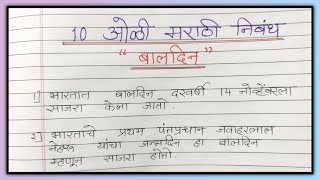 10 ओळी मराठी निबंध
“ बालदिन ”
१) भारतात बालदिन दरवर्षी 14 नोव्हेंबरला
साजरा केला जातो.
२) भारताचे प्रथम पंतप्रधान जवाहरलाल
नेहरू यांचा जन्मदिन हा बालदिन
म्हणून साजरा होतो.